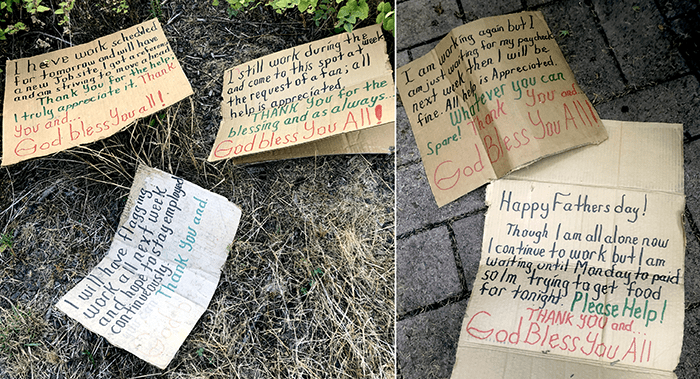 I have work scheduled
for tomorrow and will have
a new Job site, I got a referenc
and am striving to have a home
Thank You for the help
I truly appreciate it. Thank
You and...
God bless You all!
I still work during the week
and come to this spot at
the request of a fan; all
help is appreciated.
THANK YOU for the
blessing and as always...
God bless You All!
I will have flagging
work all next week
and hope to stay employed
continuously.
Thank You and.
I am working again but I
am just waiting for my paycheck
next week then I will be
fine. All help is Appreciated.
Whatever you can
Spare! Thank You and...
God Bless You All!
Happy Fathers day!
Though I am all alone now
I continue to work but I am
waiting until Monday to paid
so Im trying to get food
for tonight. Please Help!
THANK YOU and...
God Bless You All